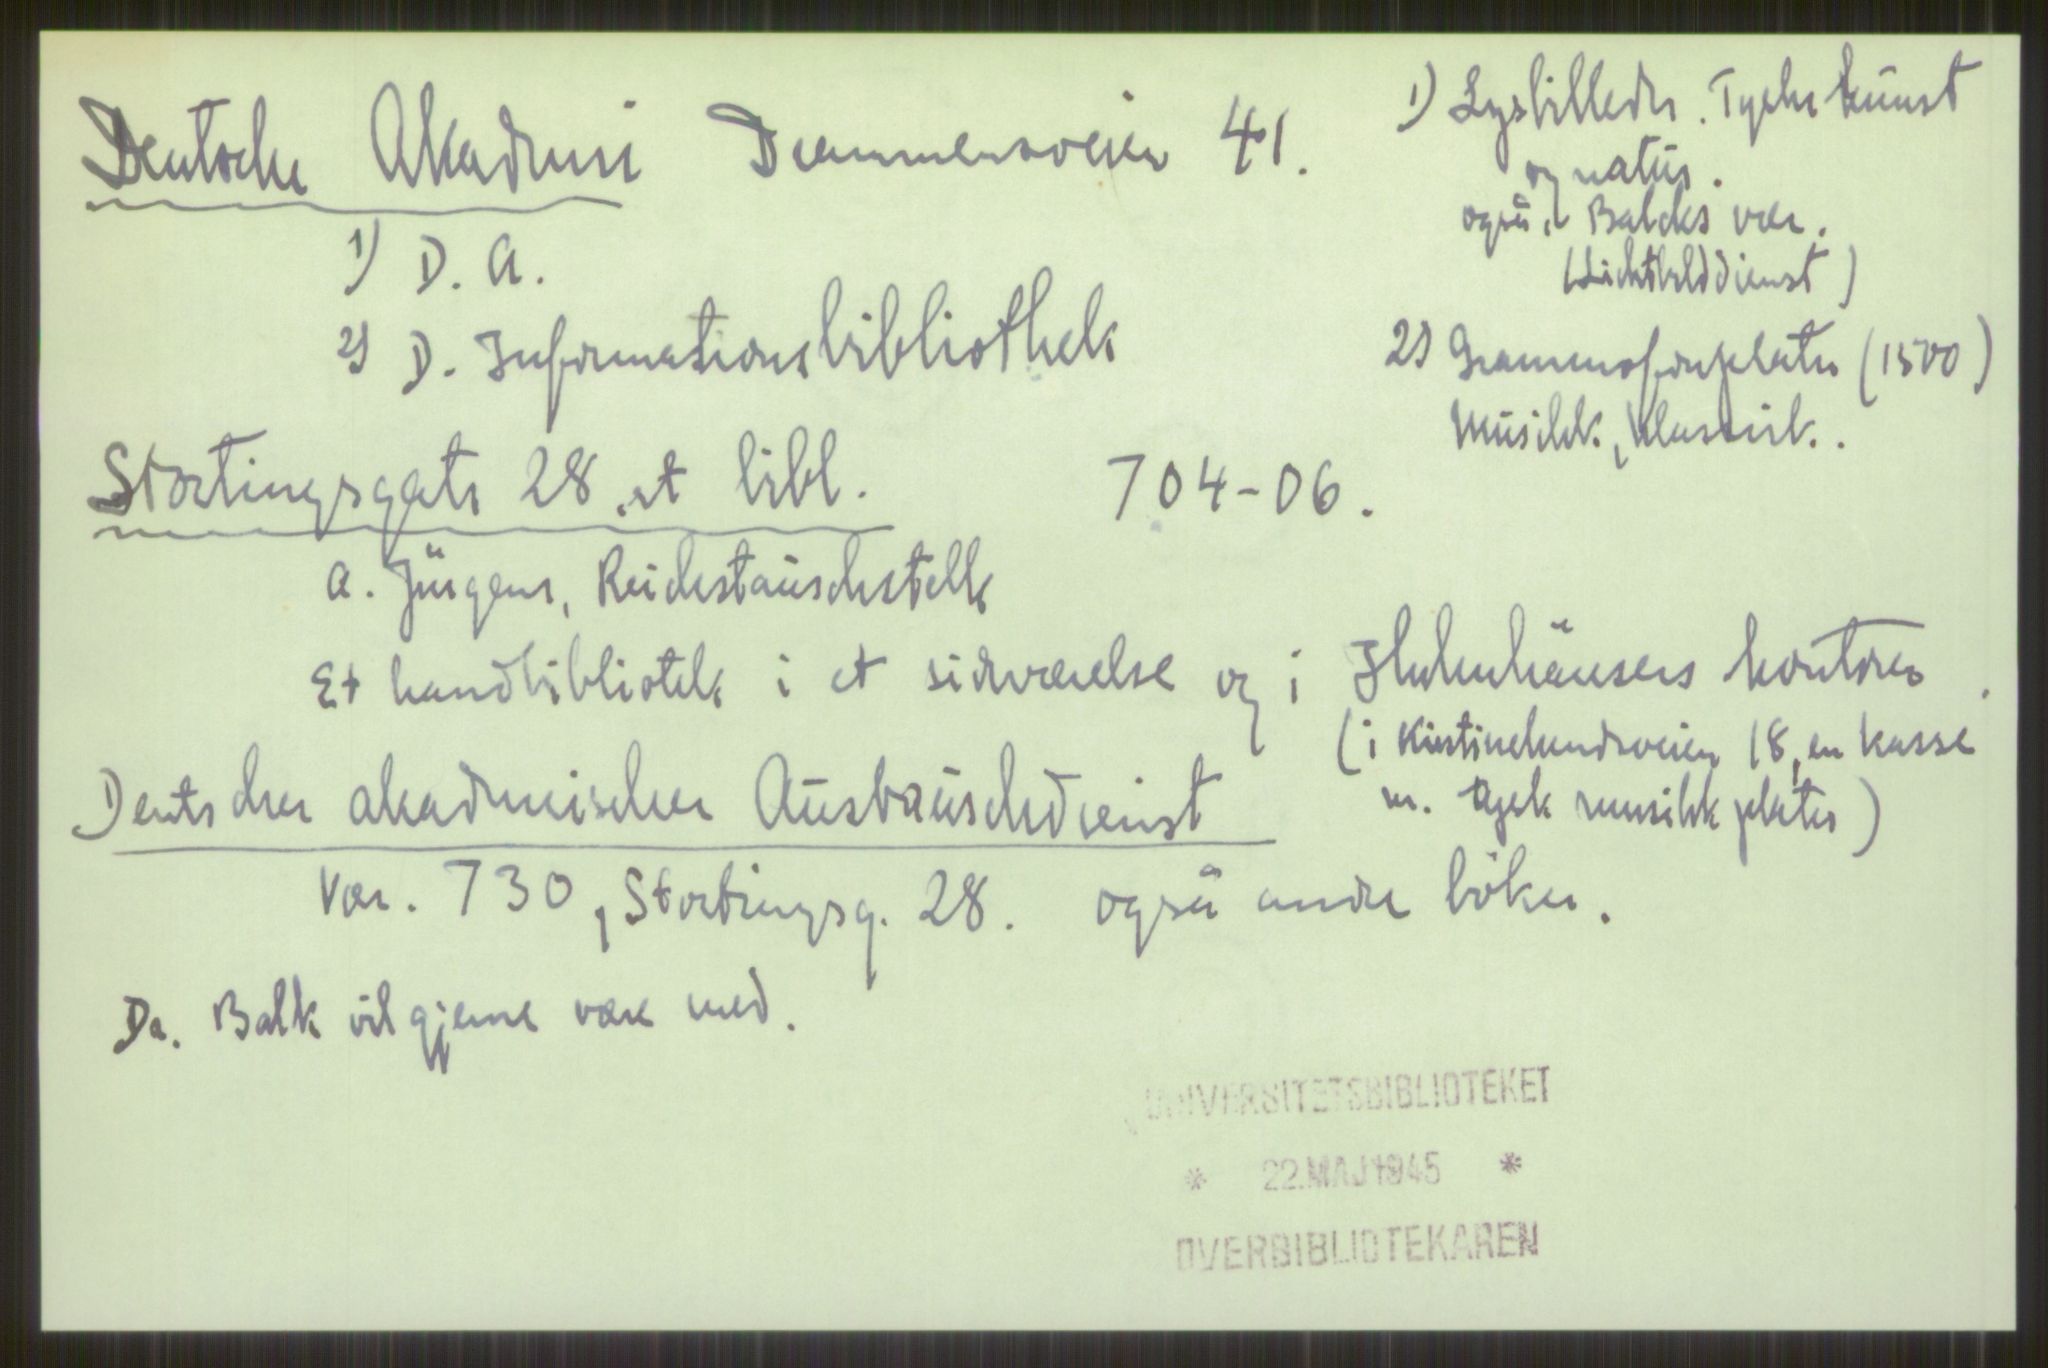 Deutsche Akademie Drammensveien 41.
1) D. A.
2) D. Informationsbibliothek
1) Lysbilleder. Tyske kunst
og natur.
også i Balcks vær.
(Lichtbilddienst)
2) Grammofonplater (1500)
Musikk, klassisk.
Stortingsgate 28, et bibl. 704-06.
A. Jürgens, Reichstauschstelle
Et handbibliotek i et sideværelse og i kontorer.
(i Kristinelundveien 18, en kasse
m. tysk musikk plater)
Deutscher akademischer Austauschdienst
Vær. 730, Stortingsg. 28. også andre böker.
Da. Balk vil gjerne være med.
UNIVERSITETSBIBLIOTEKET
* 22.MAJ 1945 *
OVERBIBLIOTEKAREN